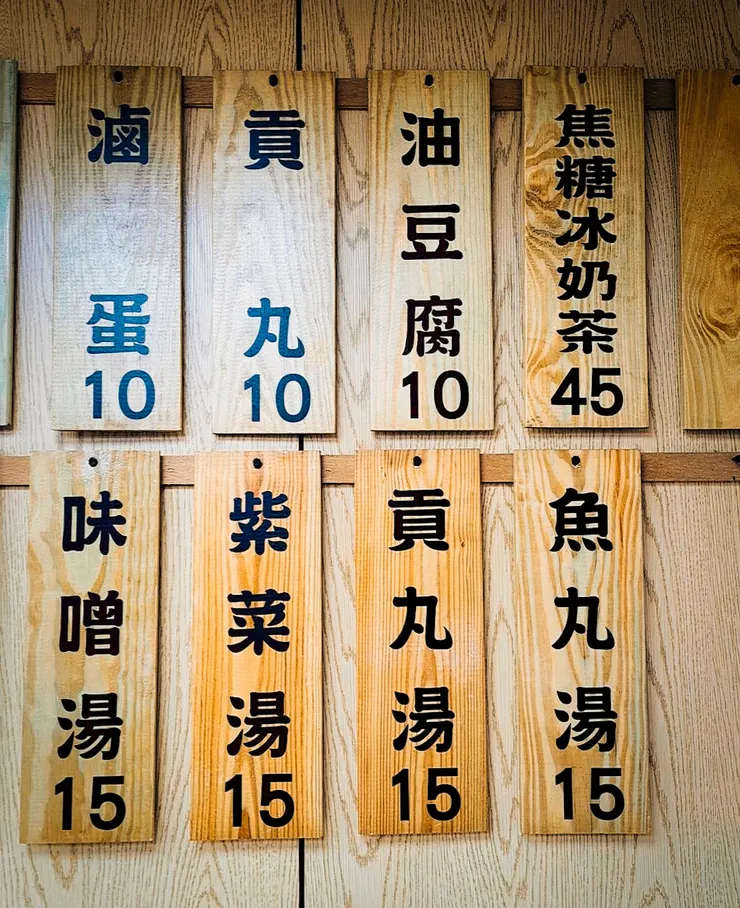 滷蛋10
貢丸10
油豆腐10
焦糖冰奶茶45
味噌湯15
紫菜湯15
貢丸湯15
魚丸湯15